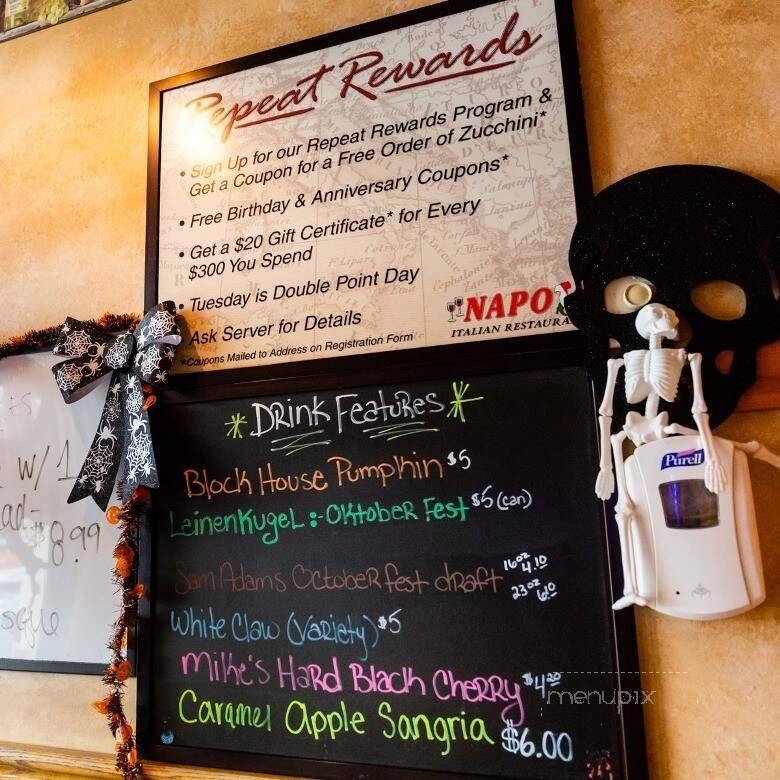 Repeat Rewards
• Sign Up for our Repeat Rewards Program &
Get a Coupon for a Free Order of Zucchini*
• Free Birthday & Anniversary Coupons*
• Get a $20 Gift Certificate* for Every
$300 You Spend
• Tuesday is Double Point Day
Ask Server for Details
*Coupons Mailed to Address on Registration Form
NAPO
ITALIAN RESTAURA
DRINK FEATURES
Block House Pumpkin $5
LeinenKugel :- OKtobeR Fest $5 (can)
Sam Adams OctobeR fest dRaft 16oz 4.10
23oz 6.10
White Claw (Variety) $5
Mike's Hard Black CheRRy $4.20
Caramel Apple Sangria $6.00
w/ 1
ad-
$8.99
Purell
menupix